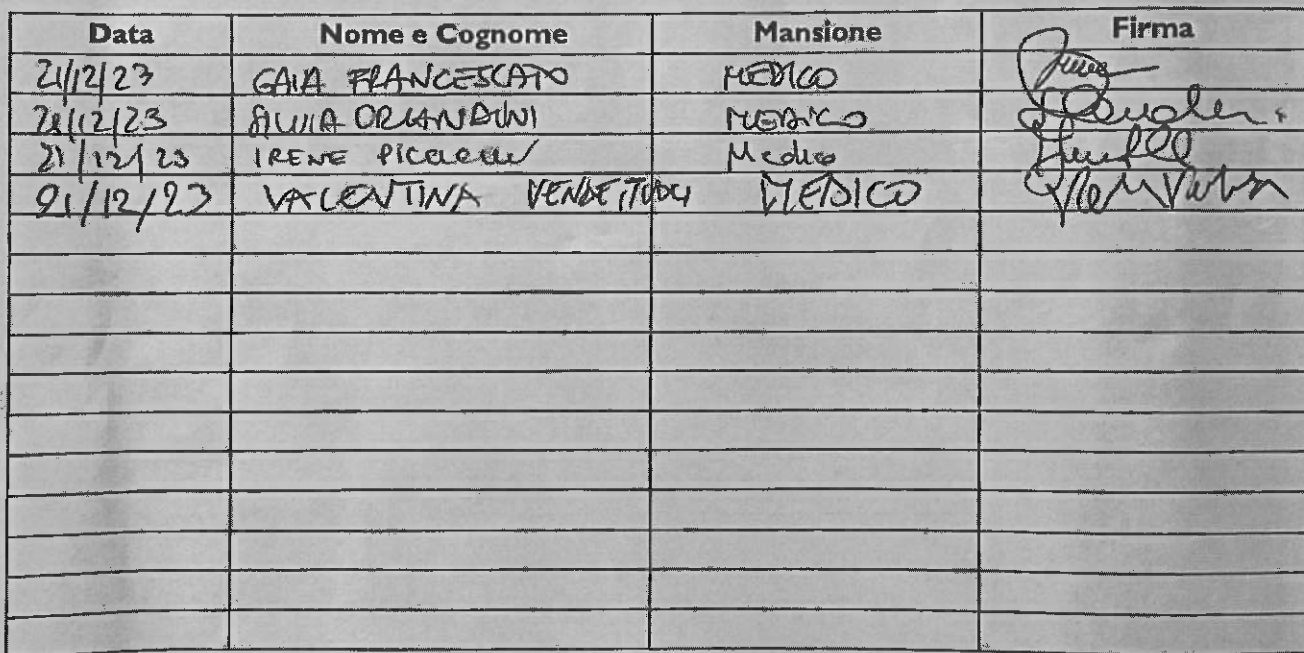 Data Nome e Cognome Mansione Firma
21/12/23 GAIA FRANCESCATO MEDICO
21/12/23 SILVIA ORLANDINI MEDICO
21/12/23 IRENE Medico
21/12/23 VALENTINA MEDICO